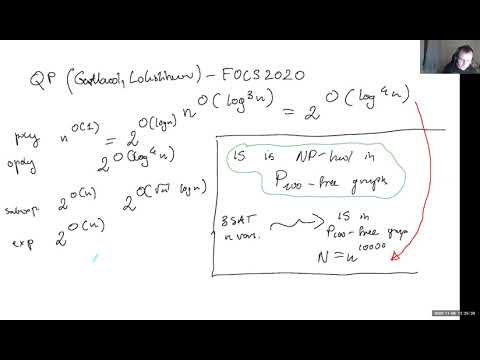 QP (Gartland, Lokshtanov) – FOCS 2020
n^O(log³n) = 2^O(log⁴n)
poly n^O(1) = 2^O(log n)
qpoly 2^O(log⁴n)
subexp 2^o(n) 2^O(√n log n)
exp 2^O(n)
IS is NP-hard in
P₁₀₀-free graph
3SAT
n vars.
IS in
P₁₀₀-free graph
N = n^10000